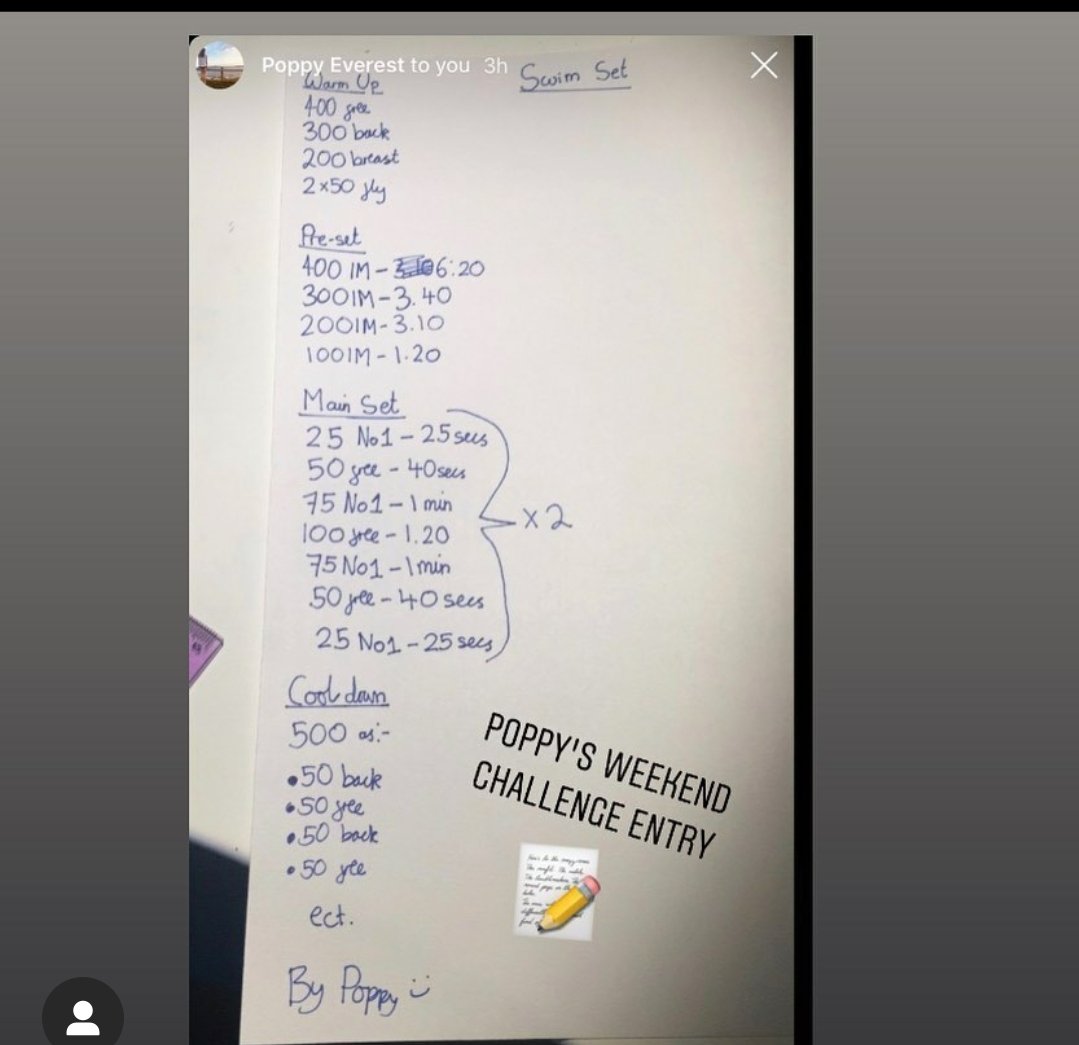 Poppy Everest to you 3h
Swim Set
Warm Up
400 free
300 back
200 breast
2x50 fly
Pre-set
400 IM - 6:20
300IM - 3.40
200IM - 3.10
100IM - 1.20
Main Set
25 No1 - 25 secs
50 free - 40 secs
75 No1 - 1 min
100 free - 1.20
75 No1 - 1 min
50 free - 40 secs
25 No1 - 25 secs
x2
Cool down
500 as:-
•50 back
•50 free
•50 back
•50 free
ect.
POPPY'S WEEKEND
CHALLENGE ENTRY
By Poppy